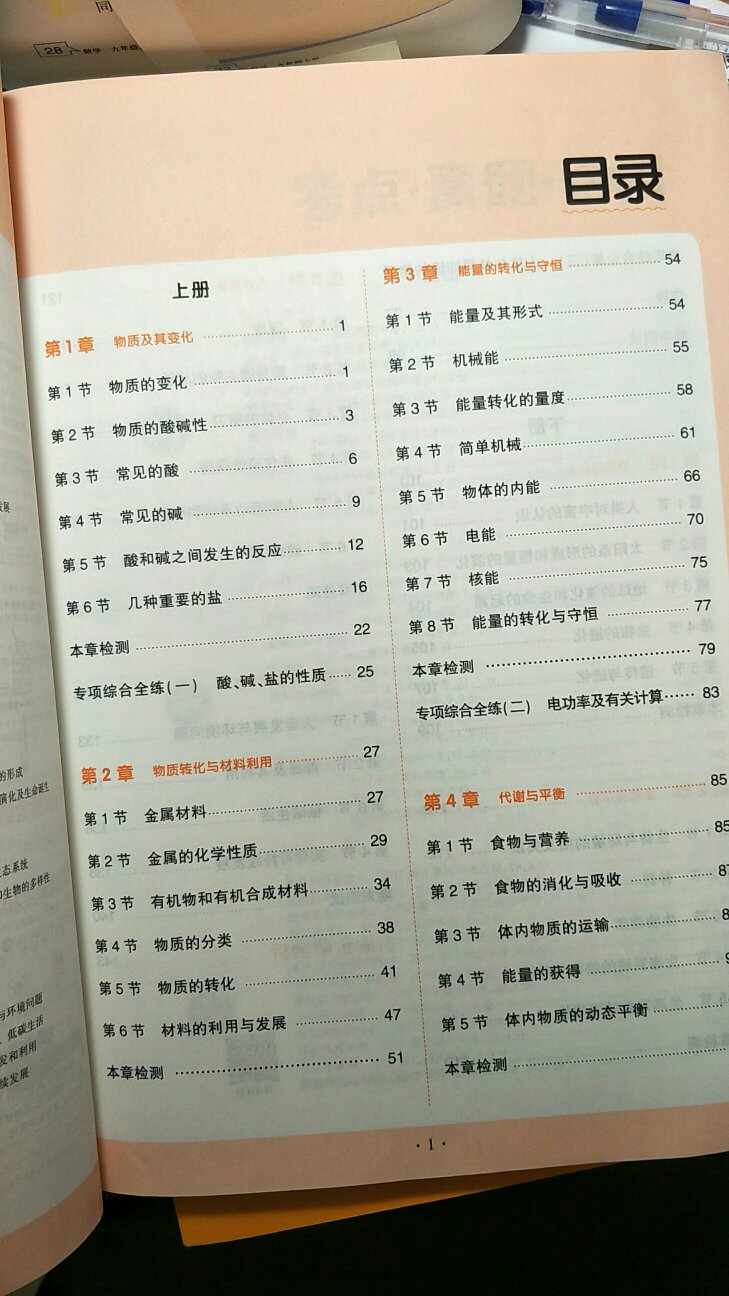 同
28 数学 九年级
目录
上册
第1章 物质及其变化 1
第1节 物质的变化 1
第2节 物质的酸碱性 3
第3节 常见的酸 6
第4节 常见的碱 9
第5节 酸和碱之间发生的反应 12
第6节 几种重要的盐 16
本章检测 22
专项综合全练(一) 酸、碱、盐的性质 25
第2章 物质转化与材料利用 27
第1节 金属材料 27
第2节 金属的化学性质 29
第3节 有机物和有机合成材料 34
第4节 物质的分类 38
第5节 物质的转化 41
第6节 材料的利用与发展 47
本章检测 51
第3章 能量的转化与守恒 54
第1节 能量及其形式 54
第2节 机械能 55
第3节 能量转化的量度 58
第4节 简单机械 61
第5节 物体的内能 66
第6节 电能 70
第7节 核能 75
第8节 能量的转化与守恒 77
本章检测 79
专项综合全练(二) 电功率及有关计算 83
第4章 代谢与平衡 85
第1节 食物与营养 85
第2节 食物的消化与吸收
第3节 体内物质的运输
第4节 能量的获得
第5节 体内物质的动态平衡
本章检测
·1·
的形成
演化及生命诞生
态系统
和生物的多样性
与环境问题
、低碳生活
发和利用
续发展